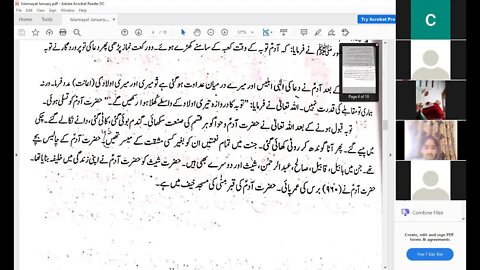 Islamiyat January.pdf - Adobe Acrobat Reader DC
Try Acrobat Pro
Page 4 of 10
نے فرمایا: کہ آدمؑ توبہ کے وقت کعبہ کے سامنے کھڑے ہوئے۔ دو رکعت نماز پڑھی پھر دعا کی تو پروردگار نے توبہ
آدمؑ نے دعا کی الٰہی ابلیس اور میرے درمیان عداوت ہو گئی ہے تو میری اور میری اولاد کی (اعانت) مدد فرما۔ ورنہ
مقابلے کی قدرت نہیں۔ اللہ تعالیٰ نے فرمایا: "توبہ کا دروازہ تیری اولاد کے واسطے کھلا ہوا رکھیں گے" حضرت آدمؑ کو تسلی ہوئی۔
توبہ قبول ہونے کے بعد اللہ تعالیٰ نے حضرت آدمؑ و حوا کو ہر قسم کی صنعت سکھائی۔ گندم بوئی گئی، کاٹی گئی، دانے نکالے گئے۔ چکی
میں پیسے گئے۔ پھر آٹا گوندھ کر روٹی پکائی گئی۔ جنت میں تمام نعمتیں ان کو بغیر کسی مشقت کے میسر تھیں۔ حضرت آدمؑ کے چالیس بچے
تھے۔ جن میں ہابیل، قابیل، صالح، عبدالرحمٰن، شیثؑ اور دوسرے بھی ہیں۔ حضرت شیثؑ کو حضرت آدمؑ نے اپنی زندگی میں خلیفہ بنایا تھا۔
حضرت آدمؑ نے (۹۶۰) برس کی عمر پائی۔ حضرت آدمؑ کی قبر منیٰ کی مسجد خیف میں ہے۔
C
Combine Files
Create, edit and sign PDF
forms & agreements
Free 7-Day Trial